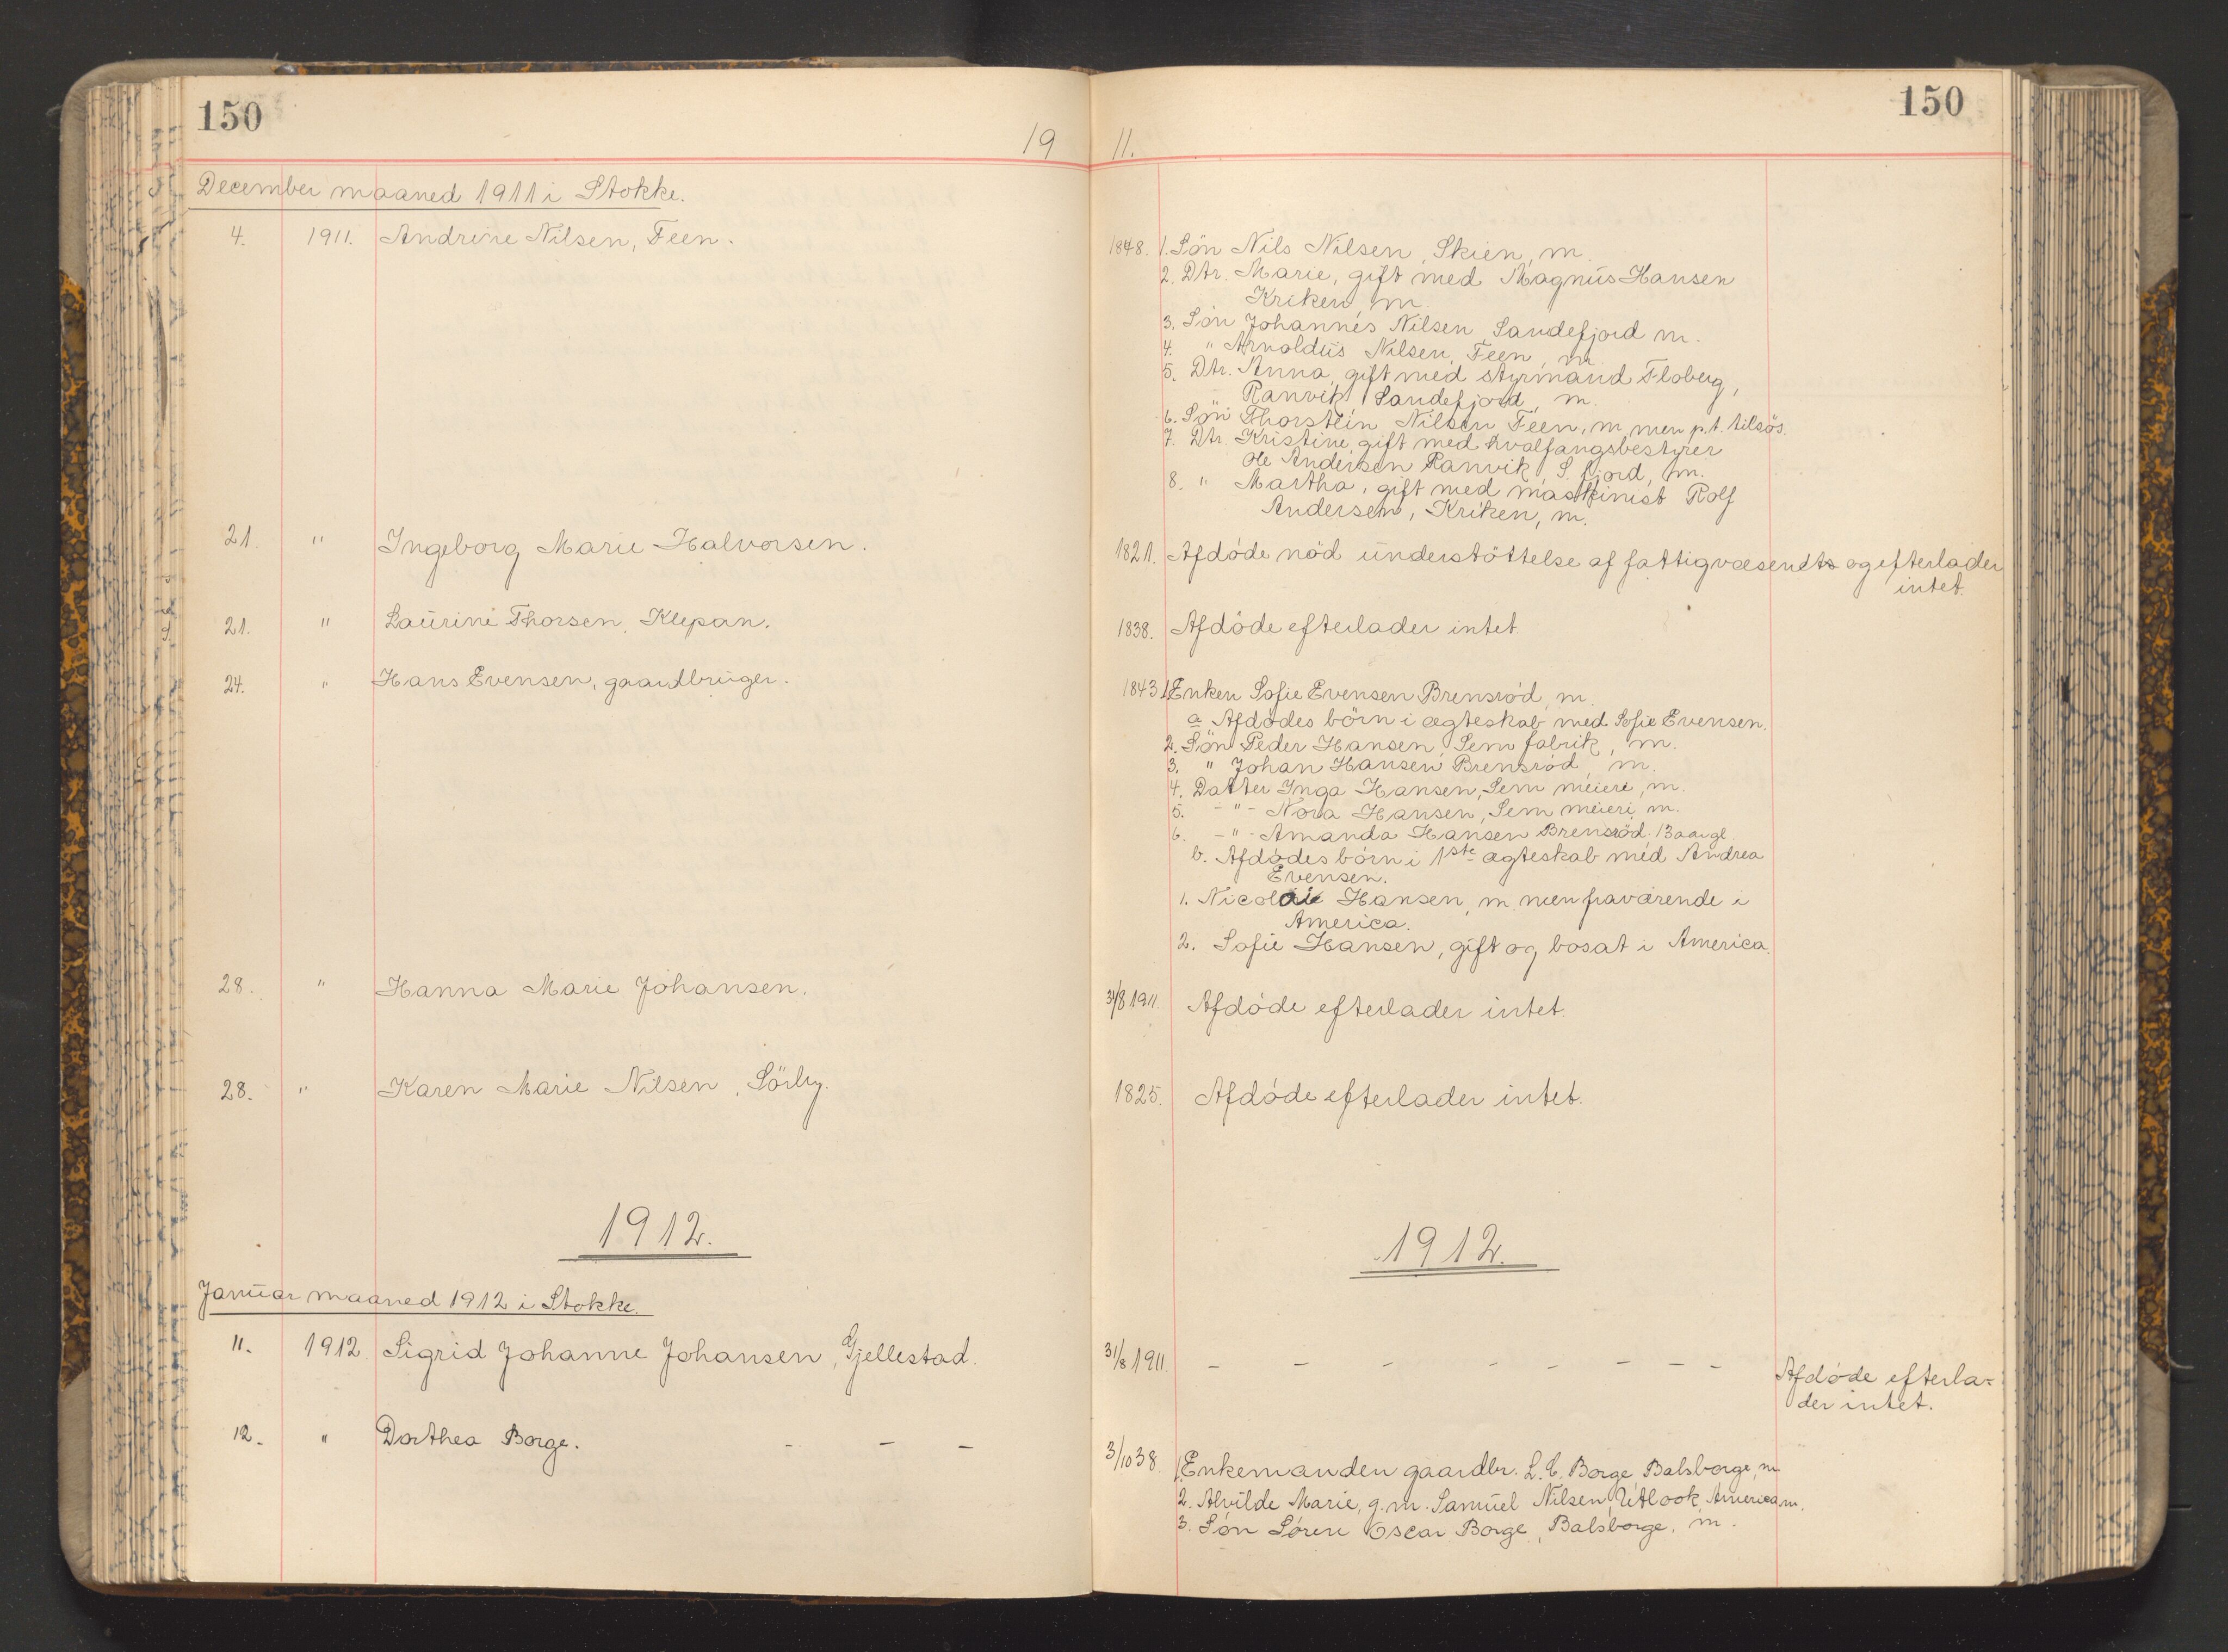 150
150
19 11.
December maaned 1911 i Stokke.
4. 1911. Andrine Nilsen, Feen.
1848. 1. Sön Nils Nilsen, Skien, m.
2. Dtr. Marie, gift med Magnus Hansen
Kriken, m.
3. Sön Johannes Nilsen Sandefjord m.
4. " Arnoldus Nilsen, Feen, m.
5. Dtr. Anna, gift med styrmand Floberg,
Ranvik, Sandefjord, m.
6. Sön Thorstein Nilsen Feen, m, men p.t. tilsös.
7. Dtr. Kristine, gift med hvalfangsbestyrer
Ole Andersen Ranvik, S. fjord, m.
8. " Martha, gift med maskinist Rolf
Andersen, Kriken, m.
21. " Ingeborg Marie Halvorsen.
1821. Afdöde nöd understöttelse af fattigvæsendts og efterlader
intet.
21. " Laurine Thorsen, Klepan.
1838. Afdöde efterlader intet.
24. " Hans Evensen, gaardbruger.
1843 1. Enken Sofie Evensen Brensröd, m.
a Afdödes börn i ægteskab med Sofie Evensen.
2. Sön Peder Hansen, Sem fabrik, m.
3. " Johan Hansen Brensröd, m.
4. Datter Inga Hansen, Sem meiere, m.
5. - " - Nora Hansen, Sem meieri, m.
6. - " - Amanda Hansen Brensröd. 13 aar gl.
b. Afdödes börn i 1ste ægteskab med Andrea
Evensen.
1. Nicolai Hansen, m. men fraværende i
America.
2. Sofie Hansen, gift og bosat i America.
28. " Hanna Marie Johansen.
31/8 1911. Afdöde efterlader intet.
28. " Karen Marie Nilsen, Sörby.
1825. Afdöde efterlader intet.
1912.
1912.
Januar maaned 1912 i Stokke.
11. 1912. Sigrid Johanne Johansen, Gjellestad.
31/8 1911. - - - - - - - - Afdöde efterla-
der intet.
12. " Dorthea Borge. - - -
3/10 38. 1. Enkemanden gaardbr. L. C. Borge Balsborge, m
2. Alvilde Marie, g. m. Samuel Nilsen, Utlook, America m.
3. Sön Sören Oscar Borge, Balsborge, m.